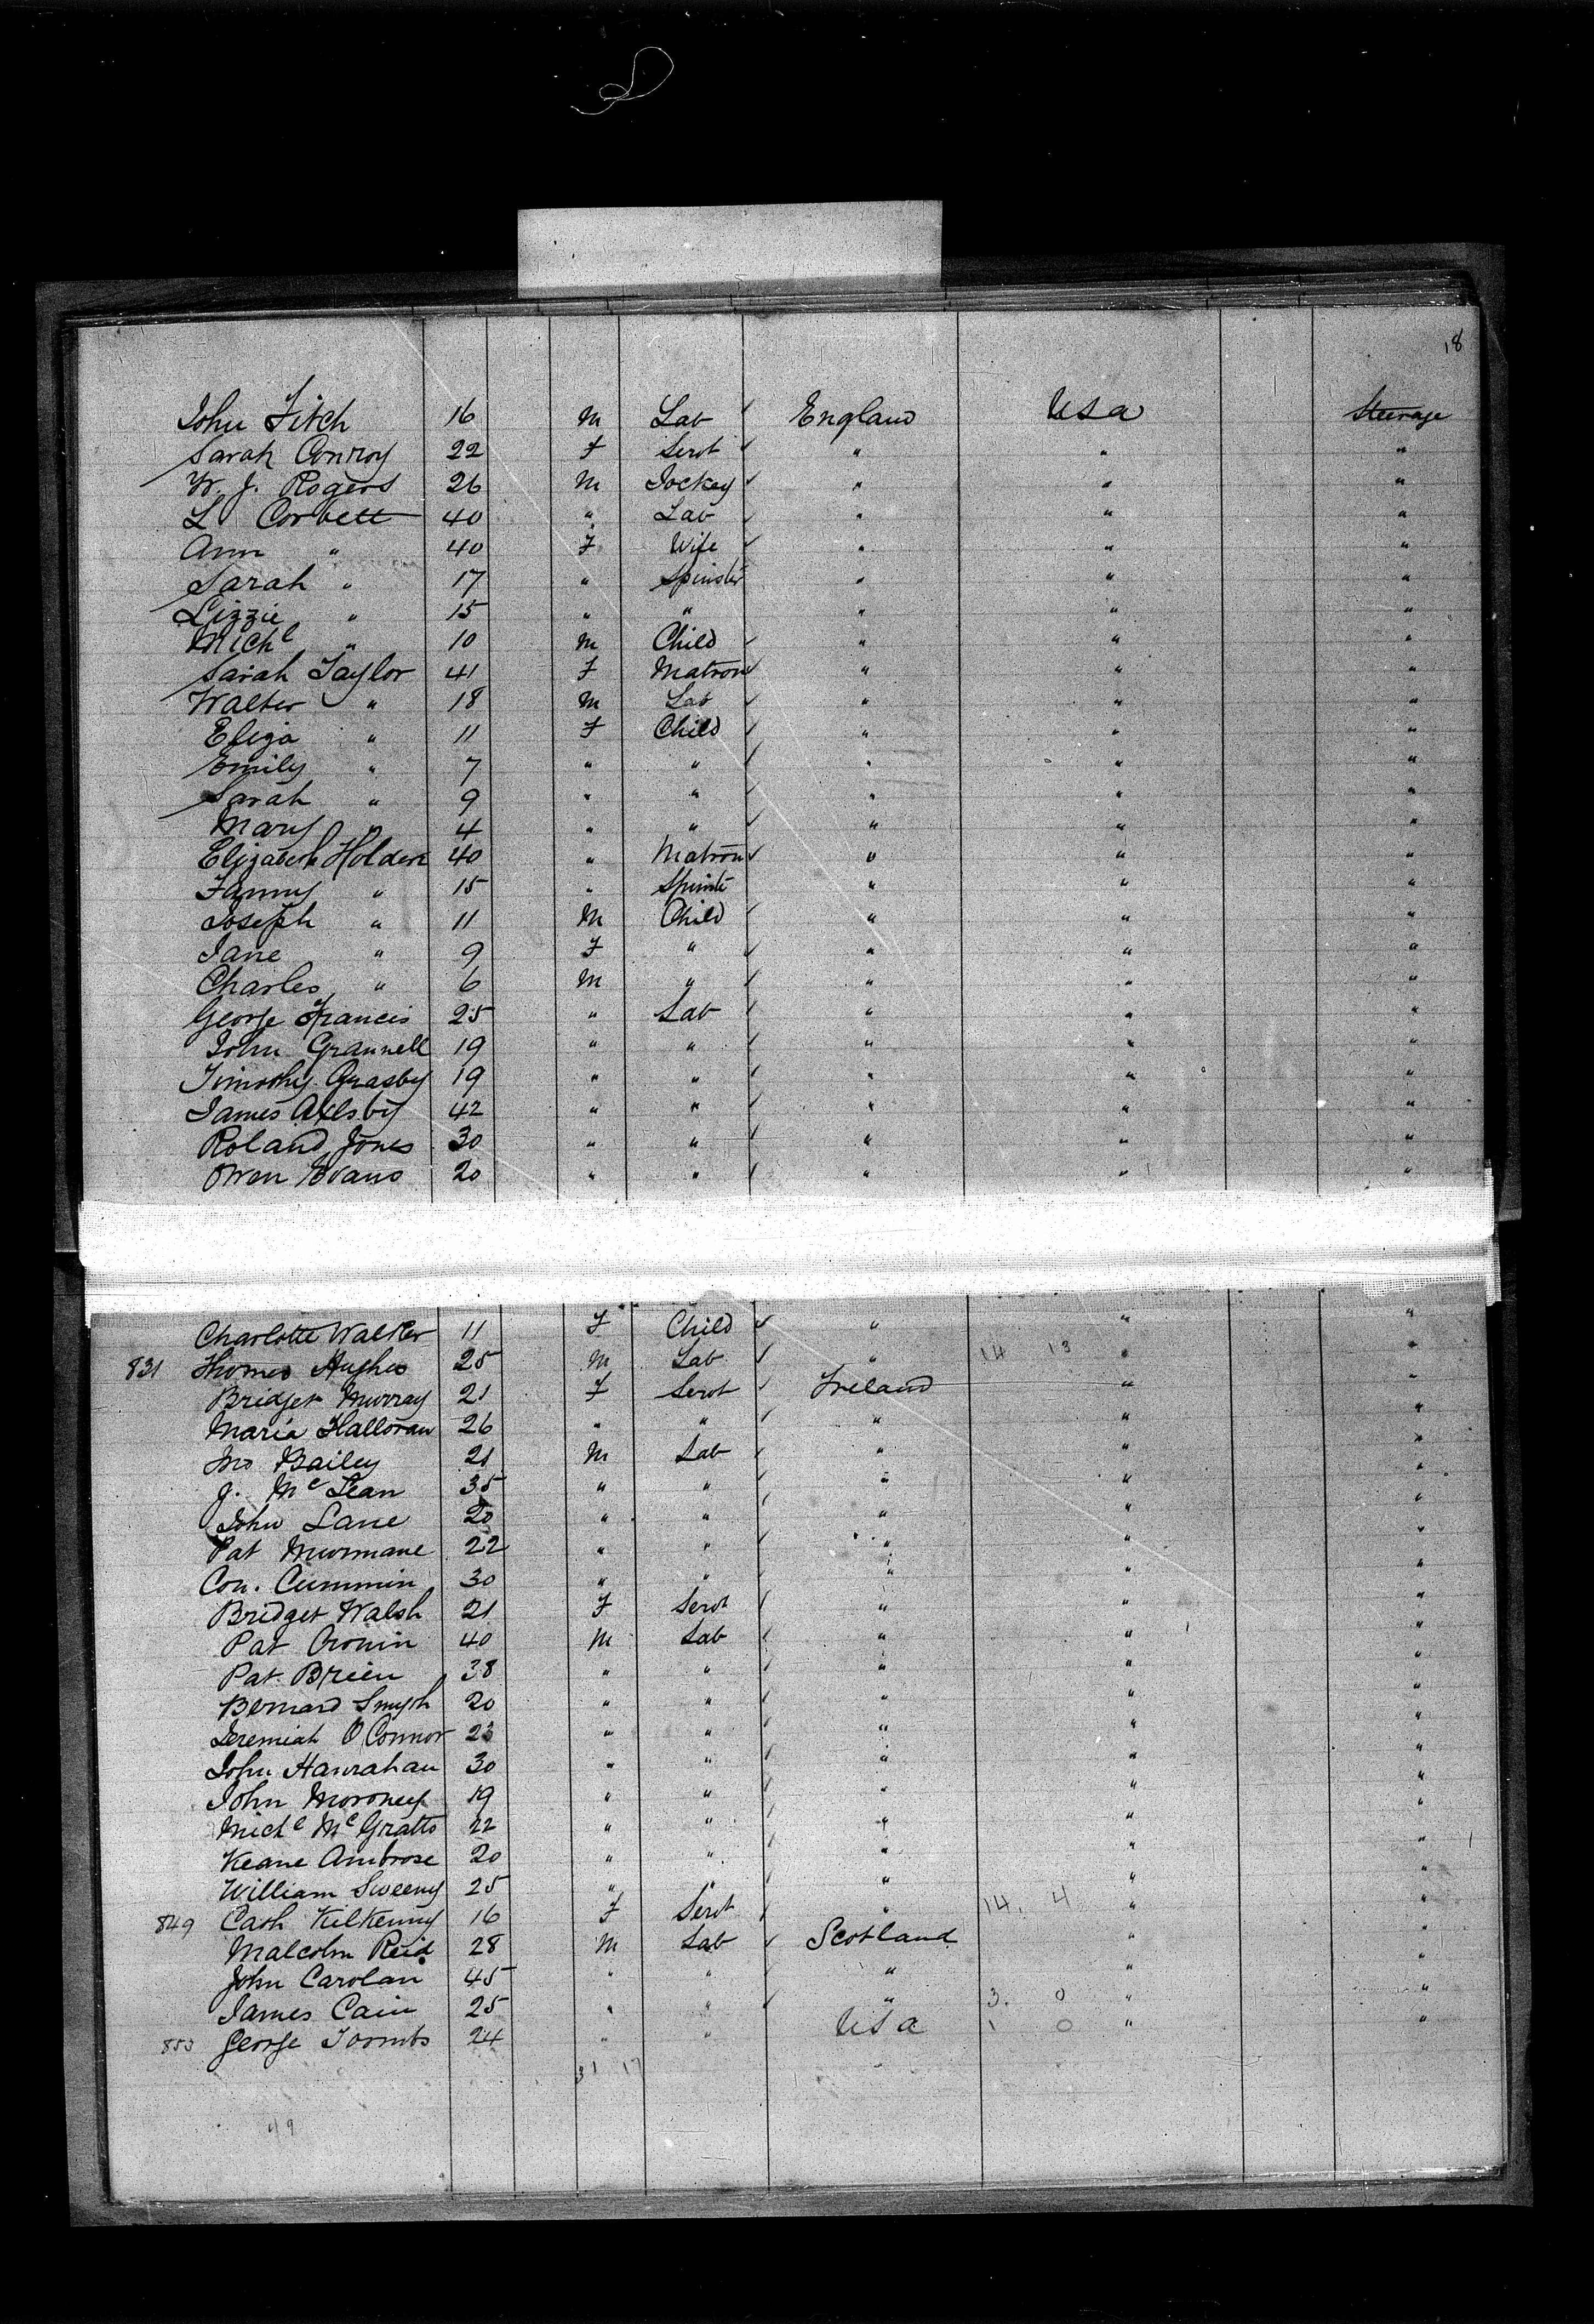 18
John Fitch 16 M Lab England USa Steerage
Sarah Conroy 22 F Servt " " "
W. J. Rogers 26 M Jockey " " "
L Corbett 40 " Lab " " "
Ann " 40 F Wife " " "
Sarah " 17 " Spinster " " "
Lizzie " 15 " " " " "
Michl " 10 M Child " " "
Sarah Taylor 41 F Matron " " "
Walter " 18 M Lab " " "
Eliza " 11 F Child " " "
Emily " 7 " " " " "
Sarah " 9 " " " " "
Mary " 4 " " " " "
Elizabeth Holden 40 " Matron " " "
Fanny " 15 " Spinste " " "
Joseph " 11 M Child " " "
Jane " 9 F " " " "
Charles " 6 M " " " "
George Francis 25 " Lab " " "
John Grannell 19 " " " " "
Timothy Grasby 19 " " " " "
James 42 " " " " "
Roland Jones 30 " " " " "
Owen Evans 20 " " " " "
Charlotte Walker 11 F Child " " "
831 Thomas Hughes 25 M Lab " 14 13 " "
Bridget Murray 21 F Servt Ireland " "
Maria Halloran 26 " " " " "
Jno Bailey 21 M Lab " " "
J. Mc Lean 35 " " " " "
John Lane 20 " " " " "
Pat Murnane 22 " " " " "
Con. Cummin 30 " " " " "
Bridget Walsh 21 F Servt " " "
Pat Cronin 40 M Lab " " "
Pat Brien 38 " " " " "
Bernard Smyth 20 " " " " "
Jeremiah O'Connor 23 " " " " "
John Hanrahan 30 " " " " "
John Moroney 19 " " " " "
Michl Mc Gratto 22 " " " " "
Keane Ambrose 20 " " " " "
William Sweeny 25 " " " " "
849 Cath Kilkenny 16 F Servt " 14. 4 " "
Malcolm Reid 28 M Lab Scotland " "
John Carolan 45 " " " " "
James Cain 25 " " " 3. 0 " "
853 George Toombs 24 " " USa 1 0 " "
31 17
49